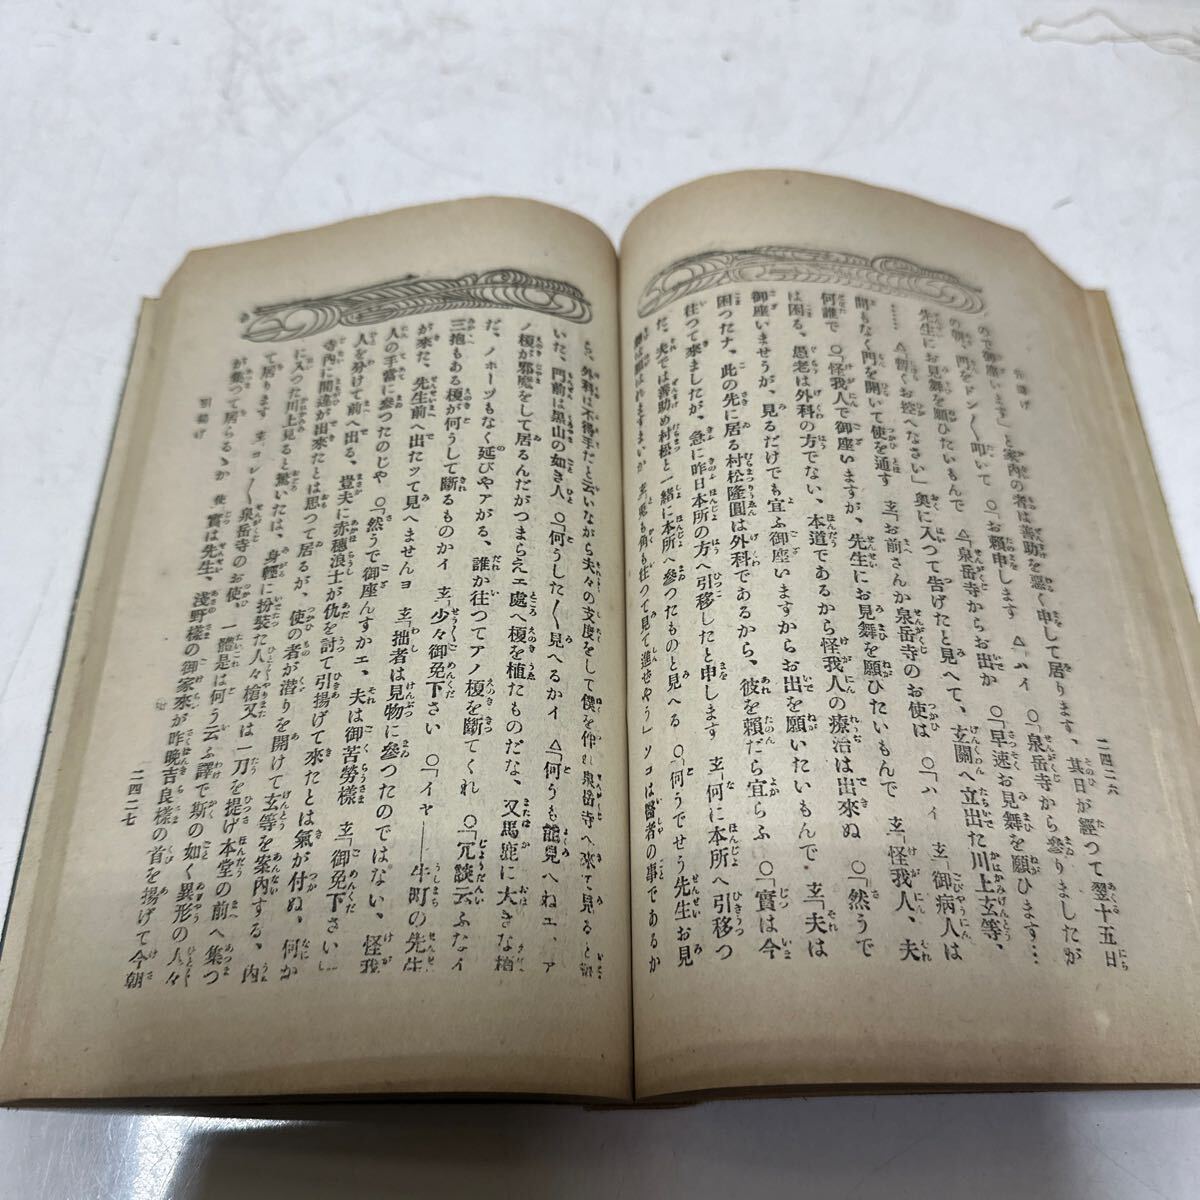 二四二六
ので御座います」と案內の者は善助を惡く申して居ります、其日が經つて翌十五日
の朝、門をドン〱叩いて ○「お賴申します △「ハイ ○「泉岳寺から參りましたが
先生にお見舞を願ひたいもんで △「泉岳寺からお出か ○「早速お見舞を願ひます…
…… △「暫くお控へなさい」奥に入つて告げたと見へて、玄關へ立出た川上玄等、
間もなく門を開いて使を通す 玄「お前さんか泉岳寺のお使は ○「ハイ 玄「御病人は
何誰で ○「怪我人で御座いますが、先生にお見舞を願ひたいもんで 玄「怪我人、夫
は困る、愚老は外科の方でない、本道であるから怪我人の療治は出來ぬ ○「然うで
御座いませうが、見るだけでも宜ふ御座いますからお出を願いたいもんで 玄「夫は
困つたナ、此の先に居る村松隆圓は外科であるから、彼を賴だら宜らふ ○「實は今
往つて來ましたが、急に昨日本所の方へ引移したと申します 玄「何に本所へ引移つ
だ、夫では善助め村松と一緖に本所へ參つたものと見へる ○「何うでせう先生お見
舞は願はれますまいか 玄「兎も角も往つて見て進ぜやう」ソコは醫者の事であるか
ら、外科は不得手だと云いながら夫々の支度をして僕を伴れ泉岳寺へ來て見ると
いた、門前は黑山の如き人 ○「何うした〱見へるかイ △「何うも能見へねエ、ア
ノ榎が邪魔をして居るんだがつまらエ處へ榎を植たものだな、又馬鹿に大きな榎
だ、ノホーヅもなく延びやアがる、誰か往つてアノ榎を斷てくれ ○「冗談云ふなイ
三抱もある榎が何うして斷るものかイ 玄「少々御免下さい ○「イヤ――牛町の先生
が來た、先生前へ出たッて見へませんヨ 玄「拙者は見物に參つたのではない、怪我
人の手當に參つたのじや ○「然うで御座んすかエ、夫は御苦勞樣 玄「御免下さい」
人を分けて前へ出る、豈夫に赤穗浪士が仇を討て引揚げて來たとは氣が付ぬ、何か
寺內に間違が出來たとは思つて居るが、使の者が潜りを開けて玄等を案內する、內
に入つた川上見ると驚いたは、身輕に扮裝た人々槍又は一刀を提げ本堂の前へ集つ
て居ります 玄「コレ〱泉岳寺のお使、一體是は何う云ふ譯で斯の如く異形の人々
が集つて居らるゝか 使「實は先生、淺野樣の御家來が昨晩吉良樣の首を揚げて今朝
引揚げ
二四二七